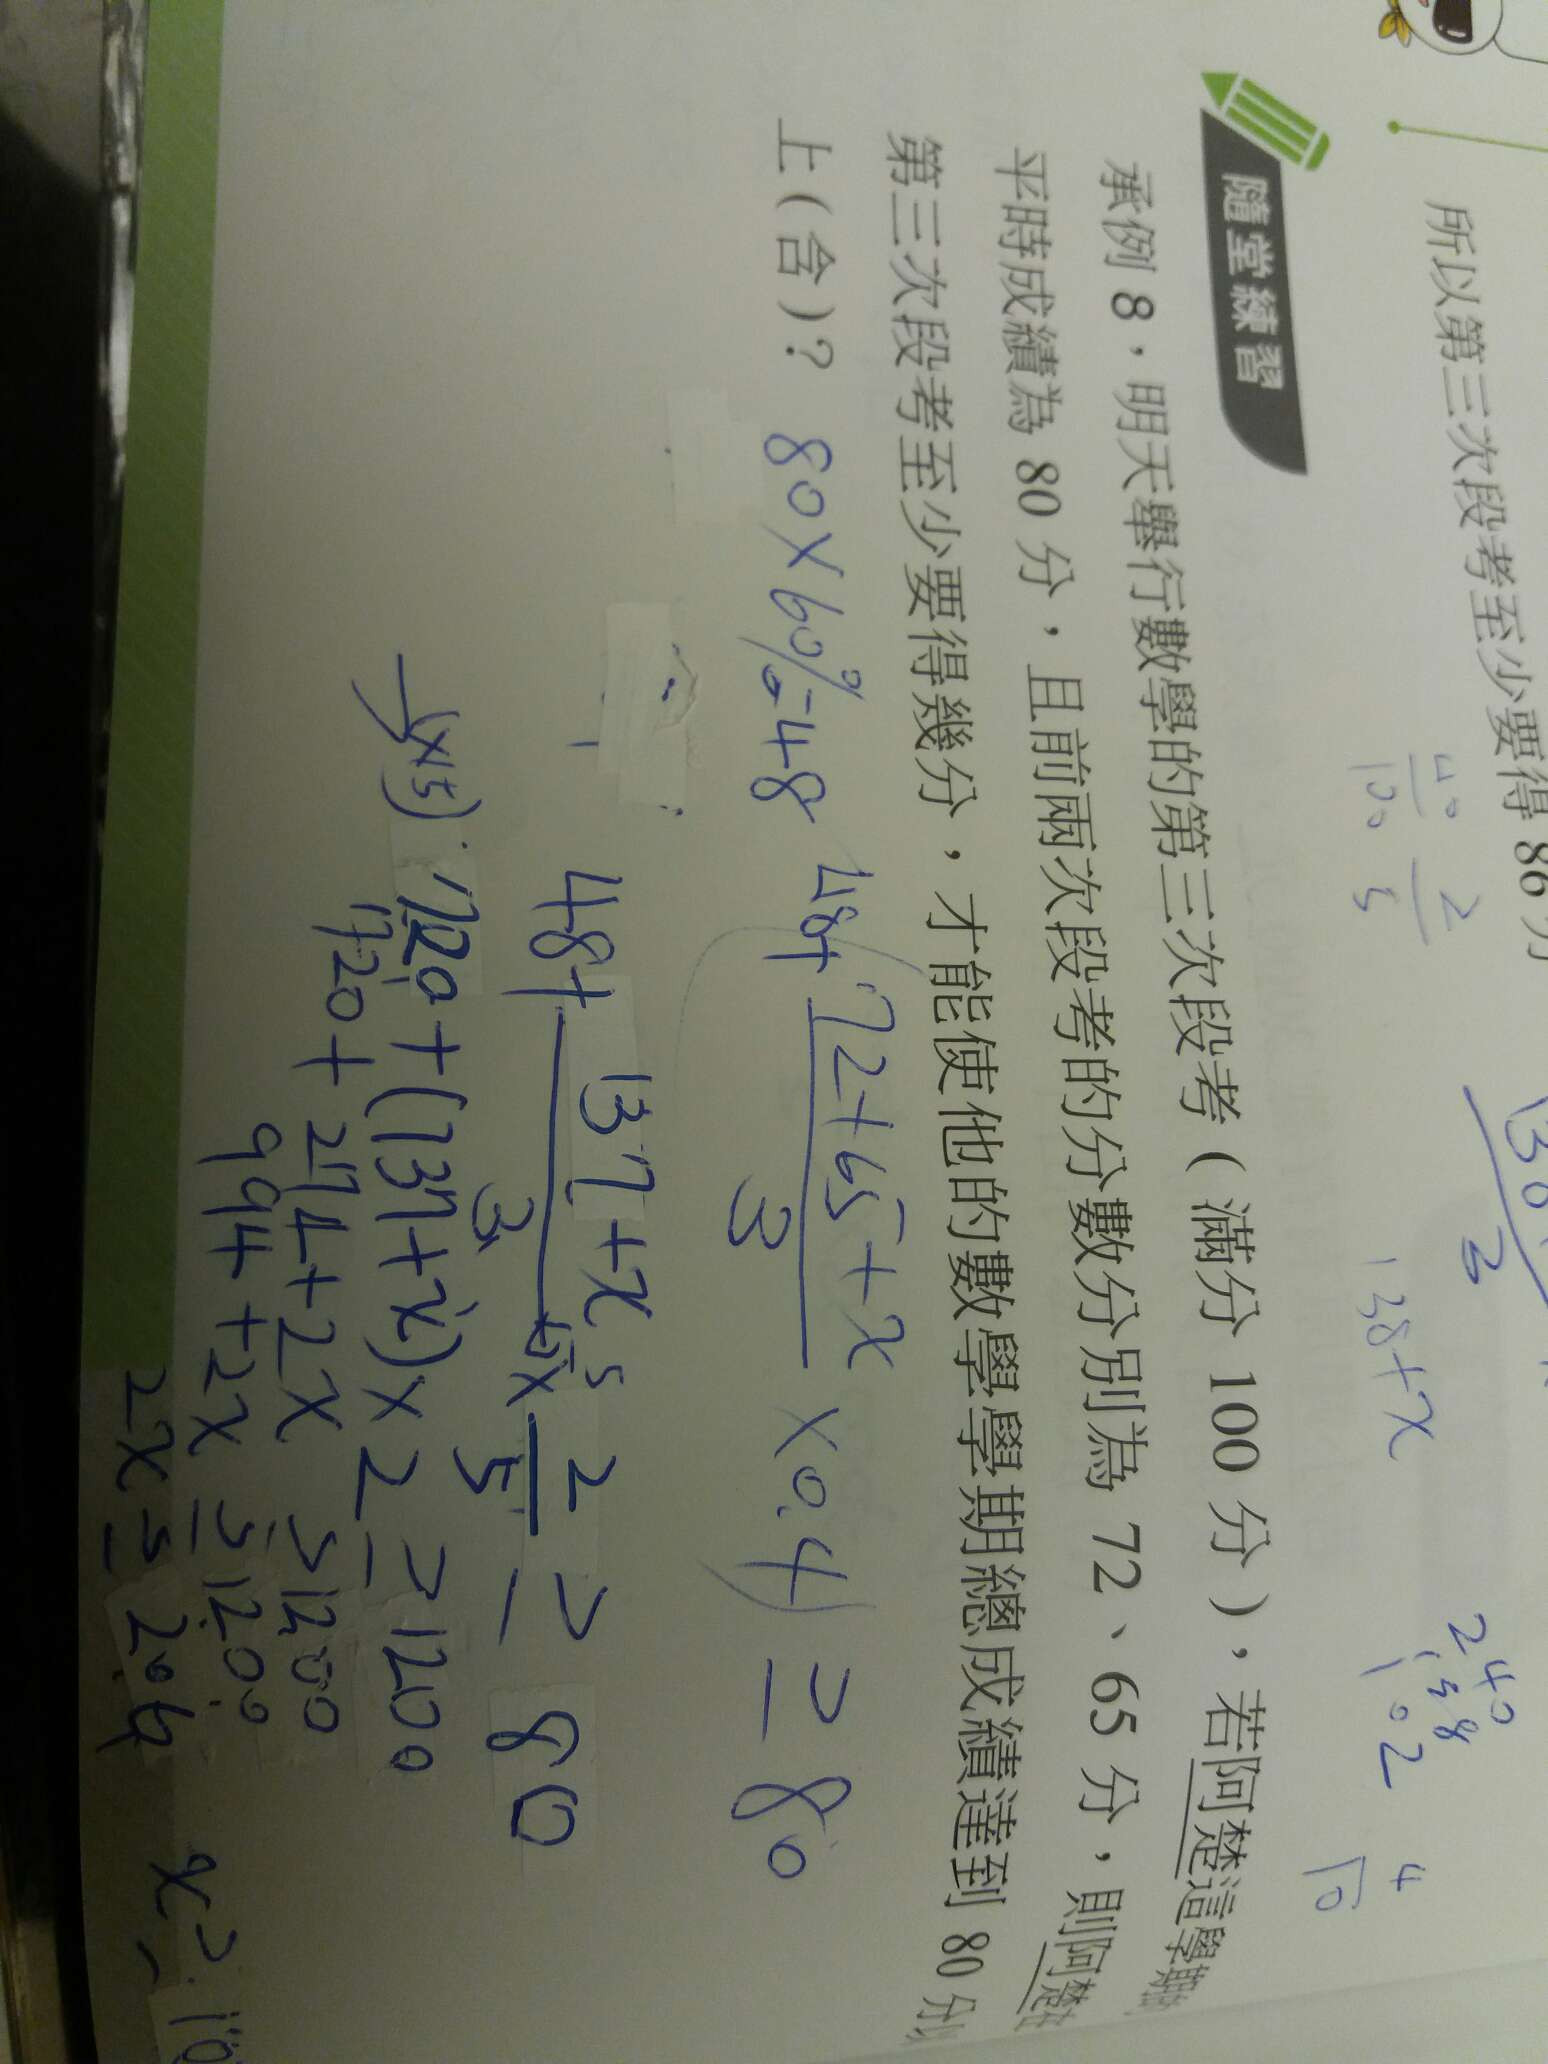 所以第三次段考至少要得 86 分
40
100
2
5
138
3
138+x
240
138
102
4
10
隨堂練習
承例 8，明天舉行數學的第三次段考（滿分 100 分），若阿楚這學期的
平時成績為 80 分，且前兩次段考的分數分別為 72、65 分，則阿楚在
第三次段考至少要得幾分，才能使他的數學學期總成績達到 80 分以
上（含）？
80×60%=48
48+ 72+65+x
3
×0.4 ≥ 80
48+ 137+x
3
× 2
5
≥ 80
(×15)
720+(137+x)×2≥1200
720+274+2x≥1200
994+2x≥1200
2x≥206
x≥10